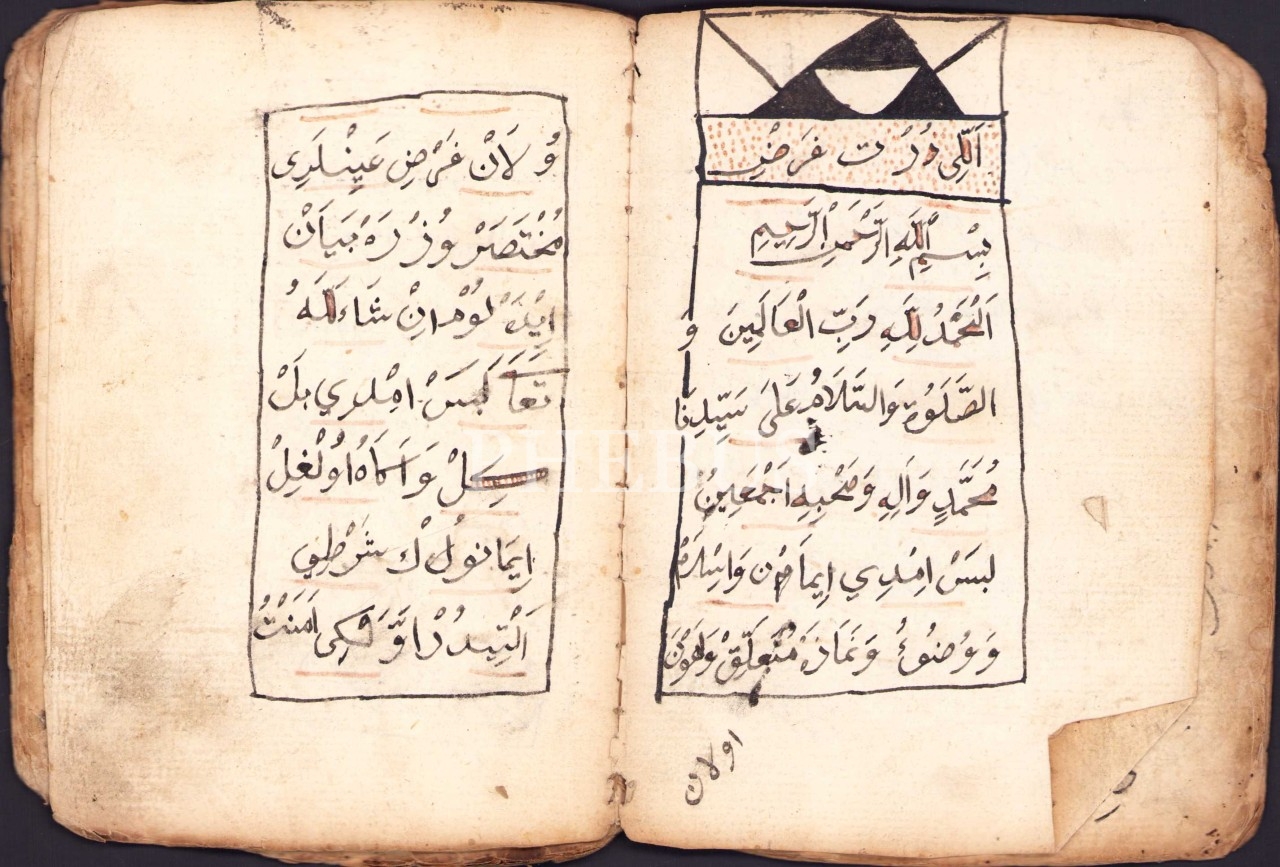 اَللّٖى دُرْت فَرَضْ
بِسْمِ اللّٰهِ الرَّحْمٰنِ الرَّحِيمِ
اَلْحَمْدُ لِلّٰهِ رَبِّ الْعَالَمِينَ وَ
الصَّلَوةُ وَالسَّلَامُ عَلَى سَيِّدِنَا
مُحَمَّدٍ وَاَلِهِ وَصَحْبِهِ اَجْمَعِينْ
لبسَ امْدِي إِيماَ وَاسْلَامْ
وَ وُضُوءُ وَنَمَازَهْ مُتَعَلِّقْ
اولان
وُلاَنْ فَرْضِ عَيْنْلَرِى
مُخْتَصَرْ وُزْرَهْ بَيَانْ
اِيْدَ لوُمْ اِنْ شَاءَ لّٰهُ
تَعَا امْدِي بلْ
كِلْ وَ اوُلْغِلْ
إِيمَا نوُلْ شَرْطِي
اَلْتِيدُرْ اَوَّ اَمَنْتُ
PHEBUS